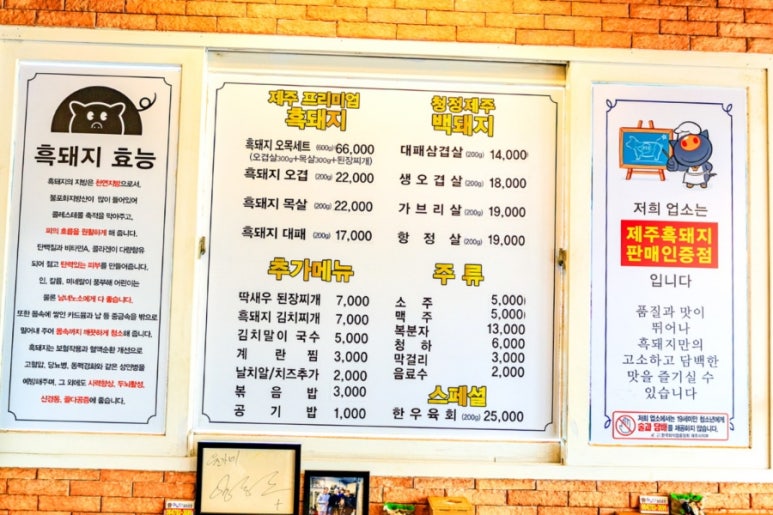 흑돼지 효능
흑돼지의 지방은 천연지방으로서,
불포화지방산이 많이 들어있어
콜레스테롤 축적을 막아주고,
피의 흐름을 원활하게 해 줍니다.
단백질과 비타민A, 콜라겐이 다량함유
되어 젊고 탄력있는 피부를 만들어줍니다.
인, 칼륨, 미네랄이 풍부해 어린이는
물론 남녀노소에게 다 좋습니다.
또한 몸속에 쌓인 카드뮴과 납 등 중금속을 밖으로
밀어내 주어 몸속까지 깨끗하게 청소해 줍니다.
흑돼지는 보혈작용과 혈액순환 개선으로
고혈압, 당뇨병, 동맥경화와 같은 성인병을
예방해주며, 그 외에도 시력향상, 두뇌활성,
신경통, 골다공증에 좋습니다.
제주 프리미엄
흑돼지
흑돼지 오목세트 (600g) 66,000
(오겹살300g+목살300g+된장찌개)
흑돼지 오겹 (200g) 22,000
흑돼지 목살 (200g) 22,000
흑돼지 대패 (200g) 17,000
청정제주
백돼지
대패삼겹살 (200g) 14,000
생오겹살 (200g) 18,000
가브리살 (200g) 19,000
항정살 (200g) 19,000
추가메뉴
딱새우 된장찌개 7,000
흑돼지 김치찌개 7,000
김치말이 국수 5,000
계란찜 3,000
날치알/치즈추가 2,000
볶음밥 3,000
공기밥 1,000
주류
소주 5,000
맥주 5,000
복분자 13,000
청하 6,000
막걸리 3,000
음료수 2,000
스페셜
한우육회 (200g) 25,000
저희 업소는
제주흑돼지
판매인증점
입니다
품질과 맛이
뛰어나
흑돼지만의
고소하고 담백한
맛을 즐기실 수
있습니다
저희 업소에서는 19세미만 청소년에게
술과 담배를 제공하지 않습니다.